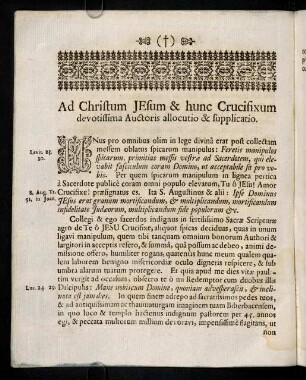 (†)
Ad Christum JEsum & hunc Crucifixum
devotissima Auctoris allocutio & supplicatio.
UNus pro omnibus olim in lege divinâ erat post collectam
messem oblatus spicarum manipulus: Feretis manipulos
Levit. 23.
spicarum, primitias messis vestræ ad Sacerdotem, qui ele-
10.
vabit fasciculum coram Domino, ut acceptabile sit pro vo-
bis. Per quem spicarum manipulum in lignea pertica
à Sacerdote publicè coram omni populo elevatum, Tu ô JEsu! Amor
S. Aug. Tr.
Crucifixe! præsignatus es. Ita S. Augustinus & alii: Ipse Dominus
51. in Joan.
JEsus erat granum mortificandum, & multiplicandum, mortificandum
infidelitate Judæorum, multiplicandum fide populorum &c.
Collegi & ego sacerdos indignus in fertilissimo Sacræ Scripturæ
agro de Te ô JESU Crucifixe, aliquot spicas deciduas, quas in unum
ligavi manipulum, quem tibi tanquam omnium bonorum Auctori &
largitori in acceptis refero, & summâ, quâ possum ac debeo, animi de-
missione offero, humiliter rogans, quatenus hunc meum qualem qua-
lem laborem benigno misericordiæ oculo digneris respicere, & sub
umbra alarum tuarum protegere. Et quia apud me dies vitæ paula-
tim vergit ad occasum, obsecro te ô mi Redemptor cum duobus illis
Luc. 24. 29.
Discipulis: Mane nobiscum Domine, quoniam advesperascit, & incli-
nata est jam dies. In quem finem adrepo ad sacratissimos pedes tuos,
& ad antiquissimam ac thaumaturgam imaginem tuam Biberbacensem,
in quo loco & templo hactenus indignum pastorem per 45. annos
egi, & peccata multorum millium devoravi, impensissimè flagitans, ut
non